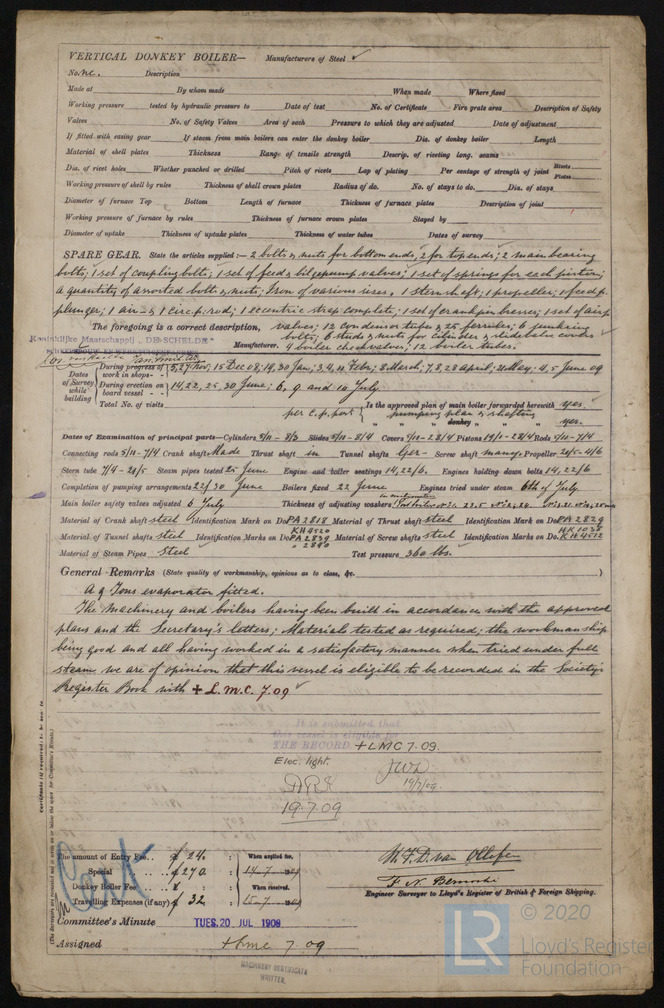 VERTICAL DONKEY BOILER— Manufacturers of Steel
No. Description
Made at By whom made When made Where fixed
Working pressure tested by hydraulic pressure to Date of test No. of Certificate Fire grate area Description of Safety
Valves No. of Safety Valves Area of each Pressure to which they are adjusted Date of adjustment
If fitted with easing gear If steam from main boilers can enter the donkey boiler Dia. of donkey boiler Length
Material of shell plates Thickness Range of tensile strength Descrip. of riveting long. seams
Dia. of rivet holes Whether punched or drilled Pitch of rivets Lap of plating Per centage of strength of joint Rivets Plates
Working pressure of shell by rules Thickness of shell crown plates Radius of do. No. of stays to do. Dia. of stays
Diameter of furnace Top Bottom Length of furnace Thickness of furnace plates Description of joint
Working pressure of furnace by rules Thickness of furnace crown plates Stayed by
Diameter of uptake Thickness of uptake plates Thickness of water tubes Dates of survey
SPARE GEAR. State the articles supplied:— 2 bolts & nuts for bottom ends, 2 for top ends; 2 main bearing
bolts; 1 set of coupling bolts; 1 set of feed & bilgepump valves; 1 set of springs for each piston;
a quantity of assorted bolts & nuts; Iron of various sizes. 1 sternshaft; 1 propeller; 1 feed p.
plunger; 1 air & 1 circ. p. rod; 1 eccentric strap complete; 1 set of crankpin brasses; 1 set of air p.
The foregoing is a correct description, valves; 12 condenser tubes & 25 ferrules; 6 junkring
bolts; 6 studs & nuts for cylinder & slidevalve covers
Koninklijke Maatschappij "DE SCHELDE"
Manufacturer. 4 boiler checkvalves; 12 boiler tubes.
Dates of Survey while building
During progress of work in shops - - 5, 27 Nov; 15 Dec 08; 19, 30 Jan; 3, 4, 10 Febr; 8 March; 7, 8, 28 April; 21 May; 4, 5 June 09
During erection on board vessel - - 14, 22, 25, 30 June; 6, 9 and 10 July.
Total No. of visits per c.p. post Is the approved plan of main boiler forwarded herewith yes.
pumping plan & shafting
" " " donkey " " " yes.
Dates of Examination of principal parts—Cylinders 5/11 - 8/3 Slides 5/11 - 8/4 Covers 5/11 - 28/4 Pistons 19/1 - 28/4 Rods 5/11 - 7/4
Connecting rods 5/11 - 7/4 Crank shaft Made Thrust shaft in Tunnel shafts Ger- Screw shaft many Propeller 20/5 - 4/6
Stern tube 7/4 - 20/5 Steam pipes tested 25 June Engine and boiler seatings 14, 22/6. Engines holding down bolts 14, 22/6
Completion of pumping arrangements 22/30 June Boilers fixed 22 June Engines tried under steam 6th of July
Main boiler safety valves adjusted 6 July Thickness of adjusting washers
Material of Crank shaft steel Identification Mark on Do. PA 2818 Material of Thrust shaft steel Identification Mark on Do. PA 2829
Material of Tunnel shafts steel Identification Marks on Do. KH 4520 PA 2839 - 2840 Material of Screw shafts steel Identification Marks on Do. HK 1038 KH 4512
Material of Steam Pipes Steel Test pressure 360 lbs.
General Remarks (State quality of workmanship, opinions as to class, &c.
A 9 Tons evaporator fitted.
The Machinery and boilers having been built in accordance with the approved
plans and the Secretary's letters; Materials tested as required; the workmanship
being good and all having worked in a satisfactory manner when tried under full
steam we are of opinion that this vessel is eligible to be recorded in the Society's
Register Book with + L.M.C. 7.09
It is submitted that
this vessel is eligible for
THE RECORD. + LMC 7.09.
Elec. light.
19.7.09
19/7/09.
The amount of Entry Fee.. f 24. : When applied for,
Special .. .. f 270 :
Donkey Boiler Fee .. .. £ : When received,
Travelling Expenses (if any) f 32 :
W.F.D. van Ollefen
Engineer Surveyor to Lloyd's Register of British & Foreign Shipping.
Committee's Minute TUES. 20 JUL 1909
Assigned + Lmc 7.09
MACHINERY CERTIFICATE
WRITTEN.
© 2020
LR Lloyd's Register
Foundation